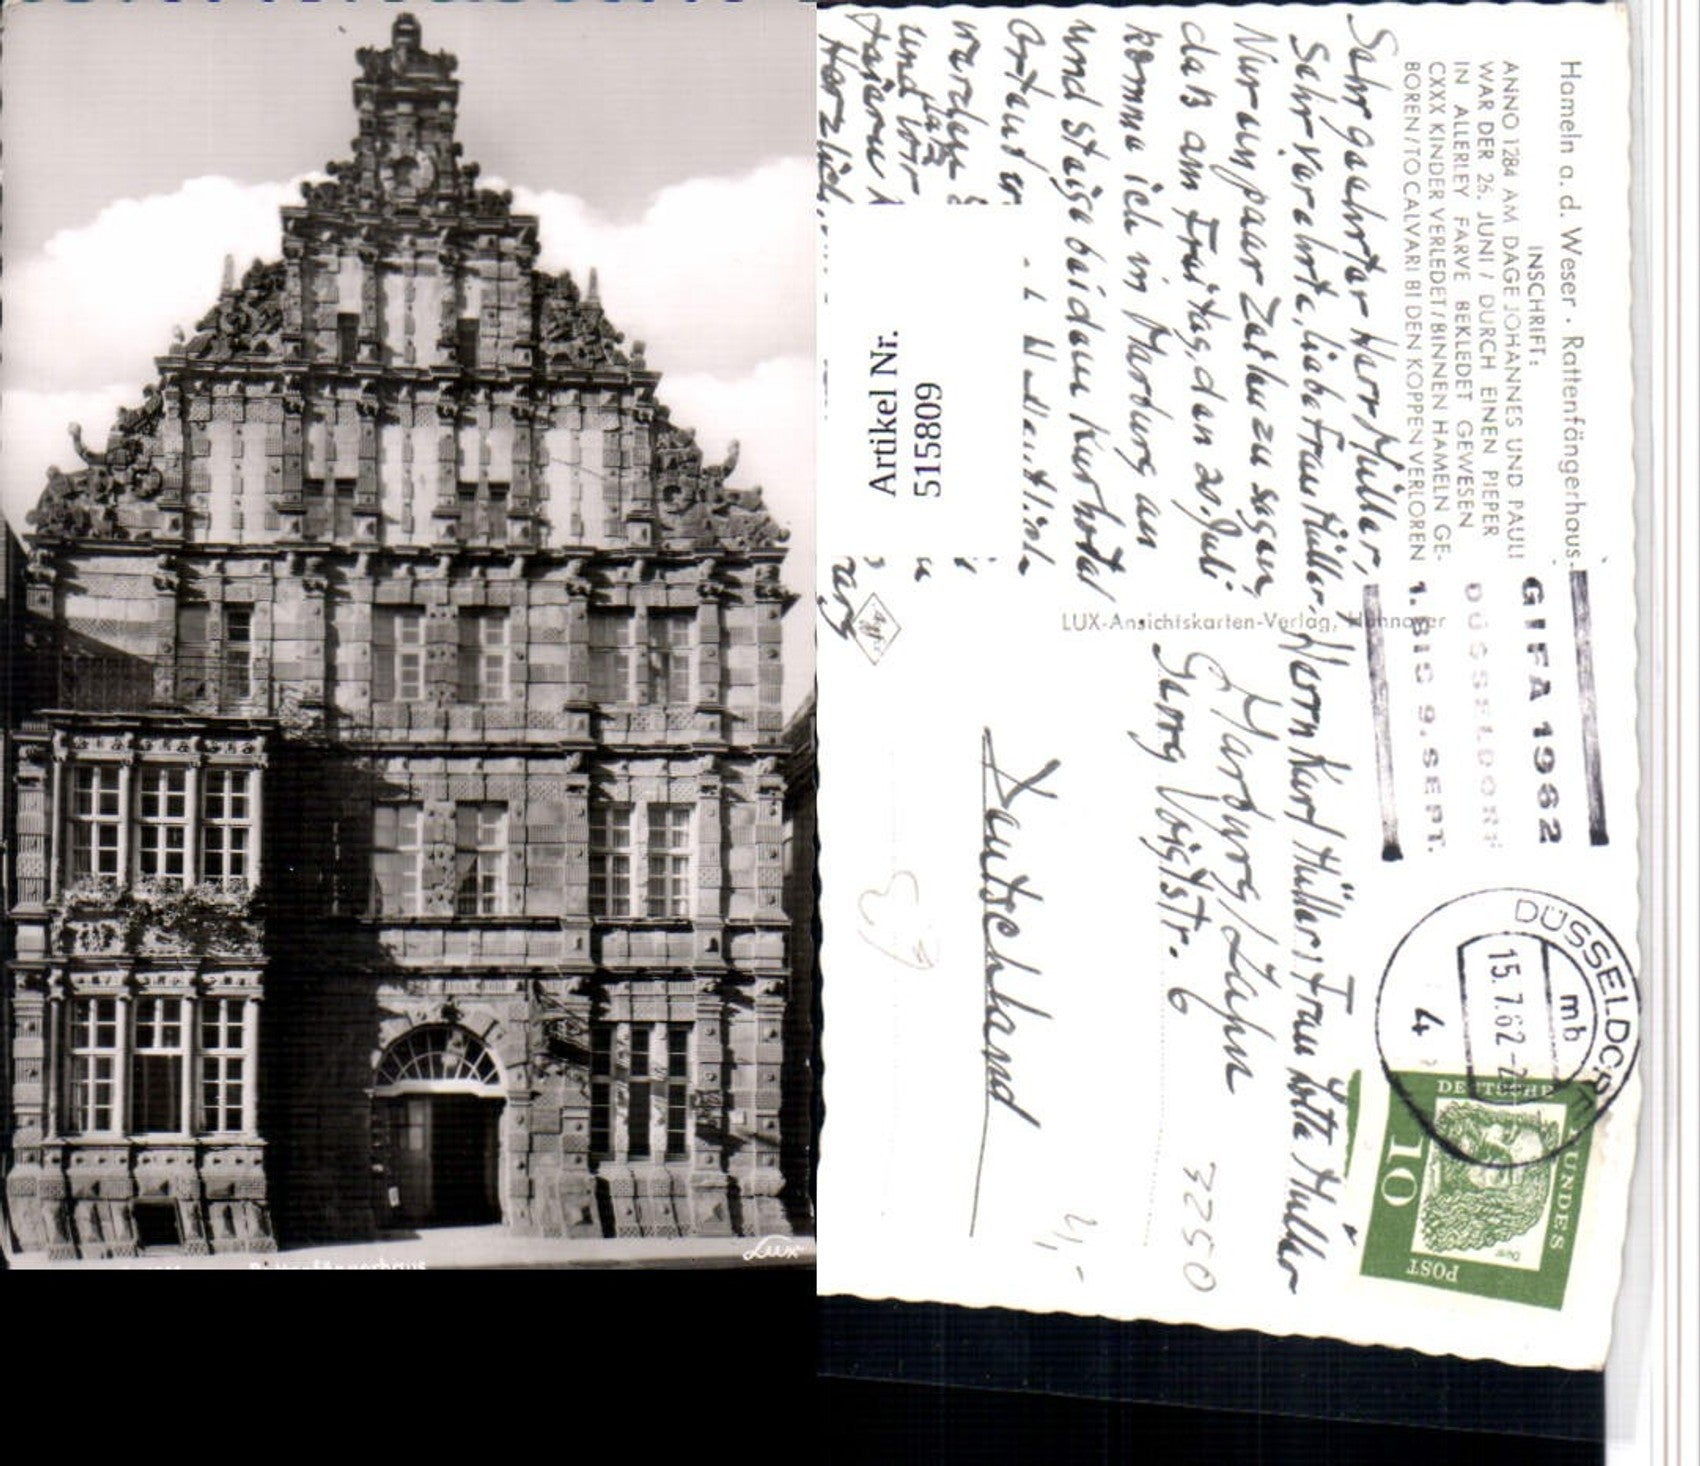 Rattenfängerhaus
Lux
Hameln a. d. Weser · Rattenfängerhaus
INSCHRIFT:
ANNO 1284 AM DAGE JOHANNES UND PAULI
WAR DER 26. JUNI / DURCH EINEN PIEPER
IN ALLERLEY FARVE BEKLEDET GEWESEN
CXXX KINDER VERLEDET / BINNEN HAMELN GE-
BOREN / TO CALVARI BI DEN KOPPEN VERLOREN
Sehr geehrter Herr Müller,
Sehr verehrte, liebe Frau Müller,
Nur ein paar Zeilen zu sagen,
daß am Freitag, den 20. Juli
komme ich in Marburg an
und steige bei dem Kurhotel
Ortenb
werden
und wir
feiern
Herzlich,
Artikel Nr.
515809
LUX-Ansichtskarten-Verlag, Hannover
GIFA 1962
DÜSSELDORF
1. BIS 9. SEPT.
DÜSSELDORF
mb
15.7.62
4
DEUTSCHE BUNDES
POST
10
Dürer
Herrn Kurt Müller, Frau Lotta Müller
Marburg/Lahn
Georg Voigtstr. 6
Deutschland
3250